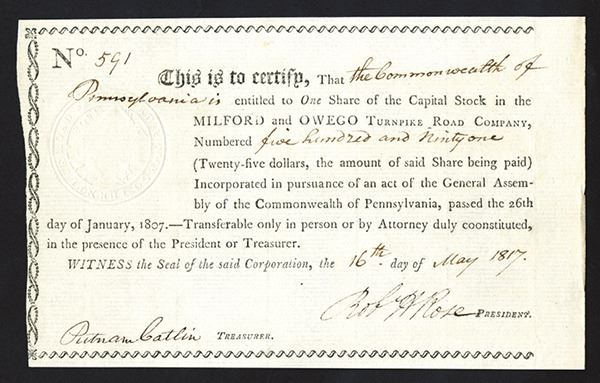 No. 591
This is to certify, That the Commonwealth of
Pennsylvania is entitled to One Share of the Capital Stock in the
MILFORD and OWEGO TURNPIKE ROAD COMPANY,
Numbered five hundred and Ninty one
(Twenty-five dollars, the amount of said Share being paid)
Incorporated in pursuance of an act of the General Assem-
bly of the Commonwealth of Pennsylvania, passed the 26th
day of January, 1807.—Transferable only in person or by Attorney duly coonstituted,
in the presence of the President or Treasurer.
WITNESS the Seal of the said Corporation, the 16th day of May 1817.
Robt H Rose PRESIDENT.
Putnam Catlin TREASURER.